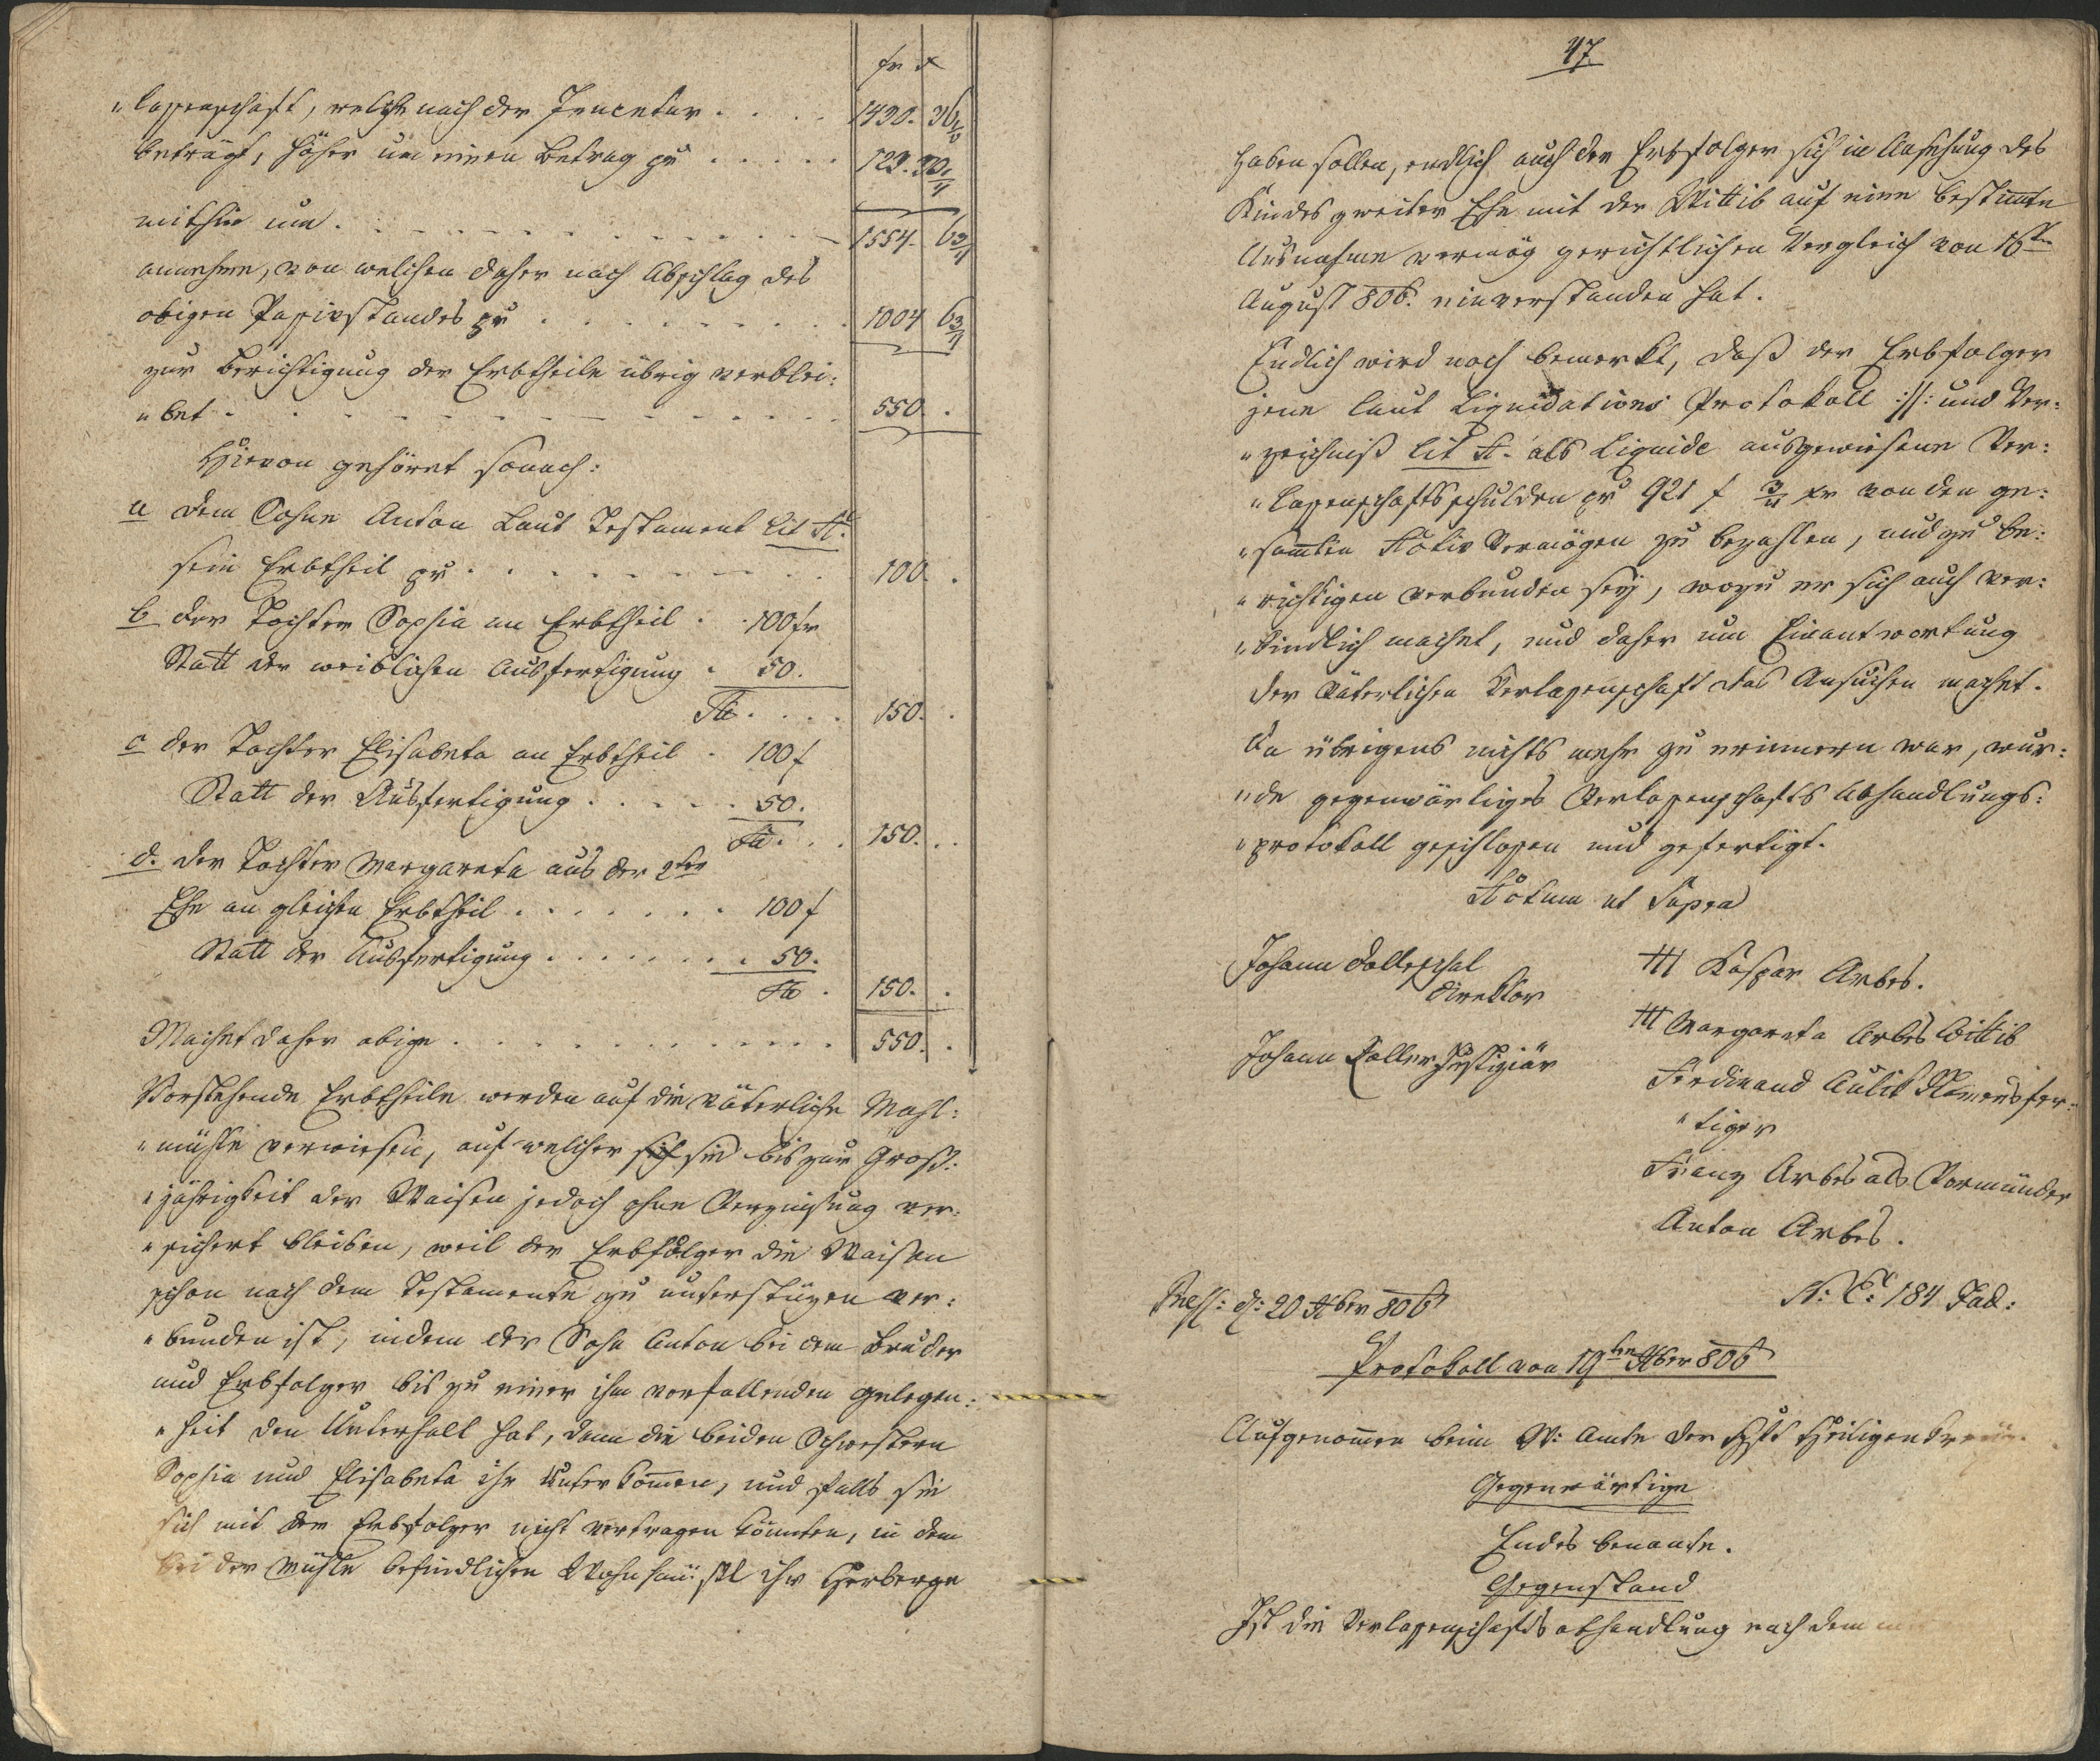 fr x
„lassenschaft, welche nach der Inventur . . . . 1430. 36
beträgt, höher um einen Betrag pr . . . . . 123. 30
mithin um . . . . . . . . 1554. 6 3/4
annehme, von welchen daher nach Abschlag des
obigen Passivstandes pr . . . . . . . 1004 6 3/4
zur Berichtigung der Erbtheile übrig verblei:
„bet . . . . . . . . . 550. .
Hievon gehöret sonach:
a dem Sohne Anton Laut Testament Lit A.
sein Erbtheil pr . . . . . . . . 100. .
b der Tochter Sophia an Erbtheil . . 100 fr
Statt der weiblichen Ausfertigung . 50.
150. .
c der Tochter Elisabeta an Erbtheil . 100 f
Statt der Ausfertigung . . . . . 50.
150. .
d. der Tochter Margareta aus der 2ten
Ehe an gleichen Erbtheil . . . . . . . 100 f
Statt der Ausfertigung . . . . . . . 50.
150. .
Machet daher obige . . . . . . . . 550. .
Vorstehende Erbtheile werden auf die väterliche Mahl:
„mühle verwiesen, auf welcher sich sie bis zur Groß:
„jährigkeit der Waisen jedoch ohne Verzinsung ver:
„sichert bleiben, weil der Erbfolger die Waisen
schon nach dem Testamente zu unterstüzen ver:
„bunden ist, indem der Sohn Anton bei dem Bruder
und Erbfolger bis zu einer ihm vorfallenden Gelegen:
„heit den Unterhalt hat, dann die beiden Schwestern
Sophia und Elisabeta ihr Unterkommen, und falls sie
sich mit dem Erbfolger nicht vertragen könnten, in dem
bei der Mühle befindlichen Wohnhäusl ihr Herberge
47
haben sollen, endlich auch der Erbfolger sich in Ansehung des
Kindes zweiter Ehe mit der Wittib auf eine bestimte
Ausnahme vermög gerichtlichen Vergleich von 16ten
August 806. einverstanden hat.
Endlich wird noch bemerkt, daß der Erbfolger
jene laut Liquidations Protokoll ://: und Ver:
„zeichniß Lit A. als Liquide ausgewiesene Ver:
„lassenschaftsschulden pr 921 f 3/4 xr von den ge:
„samten Activ Vermögen zu bezahlen, und zu be:
„richtigen verbunden sey, wozu er sich auch ver:
„bindlich machet, und daher um Einantwortung
der Väterlichen Verlassenschaft das Ansuchen machet.
Da übrigens nichts mehr zu erinnern war, wur:
„de gegenwärtiges Verlassenschafts Abhandlungs:
„protokoll geschlossen und gefertigt.
Actum ut Supra
Johann
Direktor
Johann Zoller Justiziär
+++ Kaspar Arbes.
+++ Margareta Arbes Wittib
Ferdinand Aulik Namensfer:
„tiger
Franz Arbes als Vormünder
Anton Arbes.
d: 20 806
N: E: 184 Jud:
Protokoll von 19ten 806
Aufgenommen beim W: Amte der Hft Heiligenkreuz.
Gegenwärtige
Endes benante.
Gegenstand
Ist die Verlassenschaftsabhandlung nach dem